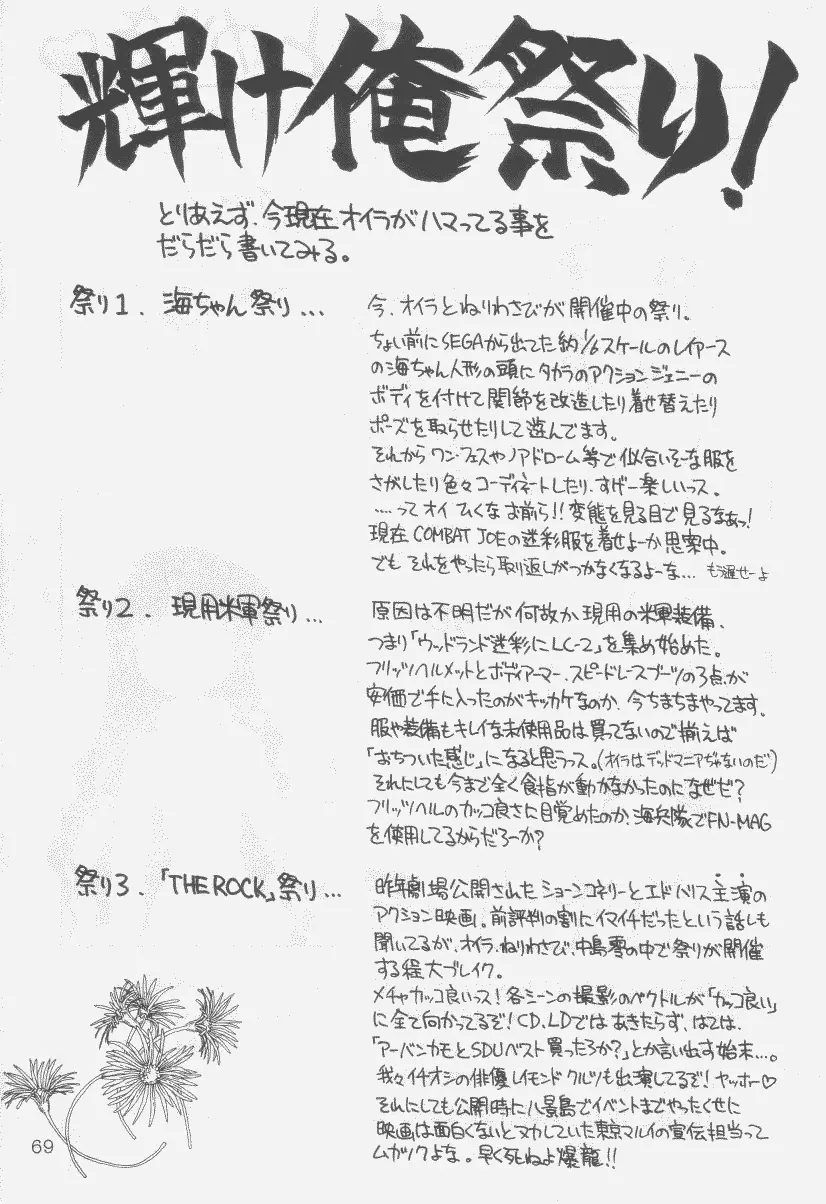 輝け俺祭り!
とりあえず、今現在オイラがハマってる事を
だらだら書いてみる。
祭り1. 海ちゃん祭り...
今、オイラとねりわさびが開催中の祭り。
ちょい前にSEGAから出てた約1/6スケールのレイアース
の海ちゃん人形の頭にタカラのアクションジェニーの
ボディを付けて関節を改造したり着せ替えたり
ポーズを取らせたりして遊んでます。
それからワンフェスやノアドローム等で似合いそーな服を
さがしたり色々コーディネートしたり、すげー楽しいっス。
....ってオイ ひくな お前ら!!変態を見る目で見るなぁっ!
現在COMBAT JOEの迷彩服を着せよーか思案中。
でもそれをやったら取り返しがつかなくなるよーな... もう遅せーよ
祭り2. 現用米軍祭り...
原因は不明だが何故か現用の米軍装備、
つまり「ウッドランド迷彩にLC-2」を集め始めた。
フリッツヘルメットとボディアーマー、スピードレースブーツの3点が
安価で手に入ったのがキッカケなのか、今ちまちまやってます。
服や装備もキレイな未使用品は買ってないので揃えば
「おちついた感じ」になると思うっス。(オイラはデッドマニアぢゃないのだ)
それにしても今まで全く食指が動かなかったのになぜだ?
フリッツヘルのカッコ良さに目覚めたのか、海兵隊でFN-MAG
を使用してるからだろーか?
祭り3. 「THE ROCK」祭り...
昨年劇場公開されたショーンコネリーとエドハリス主演の
アクション映画。前評判の割にイマイチだったという話しも
聞いてるが、オイラ、ねりわさび、中島零の中で祭りが開催
する程大ブレイク。
メチャカッコ良いっス!各シーンの撮影のベクトルが「カッコ良い」
に全て向かってるぞ!CD、LDではあきたらず、はては、
「アーバンカモとSDUベスト買ったろか?」とか言い出す始末...。
我々イチオシの俳優レイモンドクルツも出演してるぞ!ヤッホー♡
それにしても公開時に八景島でイベントまでやったくせに
映画は面白くないとヌカしていた東京マルイの宣伝担当って
ムガツクよな。早く死ねよ爆龍!!
69